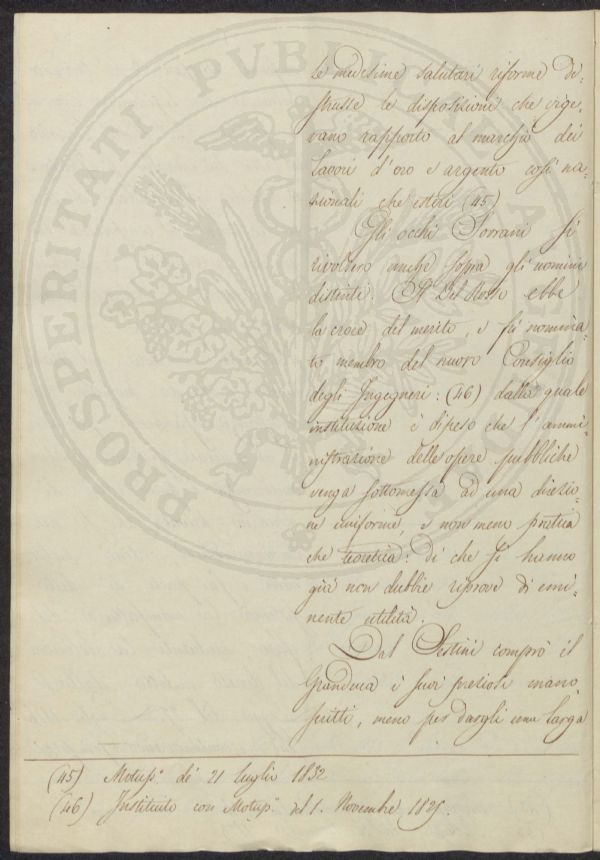 le medesime salutari riforme di=
strusse le disposizioni che vige=
vano rapporto al marchio dei
lavori d'oro e argento così na=
zionali che esteri (45)
Gli occhi Sovrani si
rivolsero anche sopra gli uomini
distinti. Il Del Rosso ebbe
la croce del merito, e fù nomina=
to membro del nuovo Consiglio
degli Ingegneri: (46) dalla quale
instituzione è dipeso che l'ammi=
nistrazione delle opere pubbliche
venga sottomessa ad una direzio=
ne uniforme, e non meno pratica
che teoretica: di che si hanno
già non dubbie riprove di emi=
nente utilità.
Dal Sestini comprò il
Granduca i suoi preziosi mano
scritti, meno per dargli una larga
(45) Motup.° de' 21 luglio 1832
(46) Instituito con Motup.° del 1. Novembre 1825.
PROSPERITATI PVBLICAE